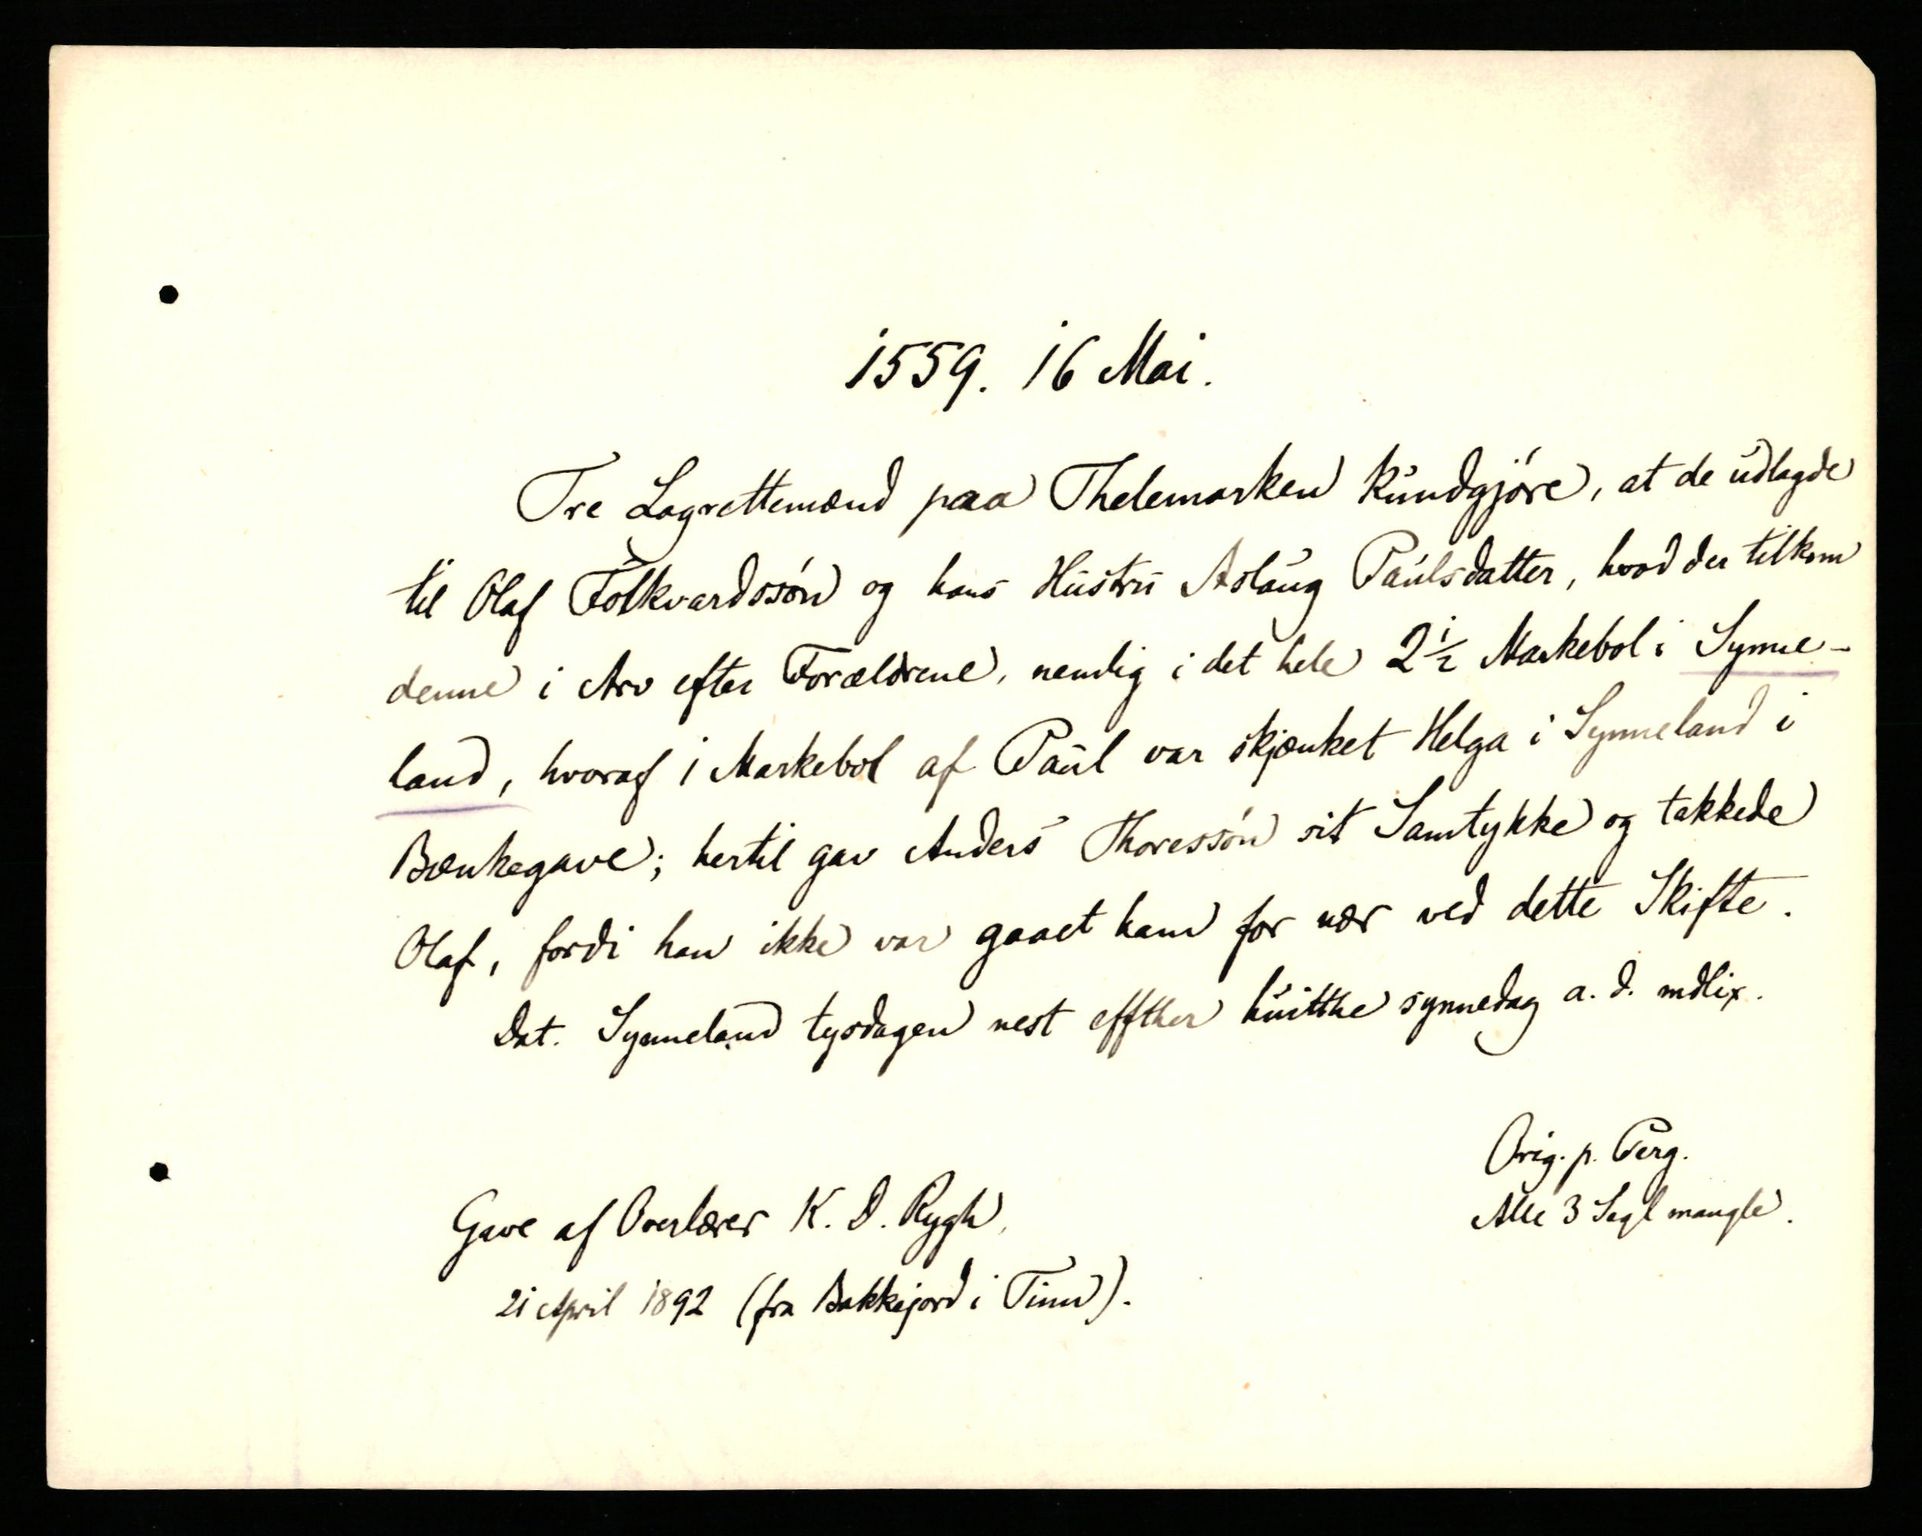 1559. 16 Mai.
Tre Lagrettemænd paa Thelemarken kundgjøre, at de udlagde
til Olaf Folkvardssøn og hans Hustru Aslaug Paulsdatter, hvad der tilkom
denne i Arv efter Forældrene, nemlig i det hele 2½ Markebol i Synne-
land, hvoraf 1 Markebol af Paul var skjænket Helga i Synneland i
Bænkegave; hertil gav Anders Thoressøn sit Samtykke og takkede
Olaf, fordi han ikke var gaaet ham for nær ved dette Skifte.
Dat. Synneland tysdagen nest effther huitthe synnedag a. d. mdlix.
Orig. p. Perg.
Alle 3 Segl mangle.
Gave af Overlærer K. D. Rygh,
21 April 1892 (fra Bakkejord i Tinn).